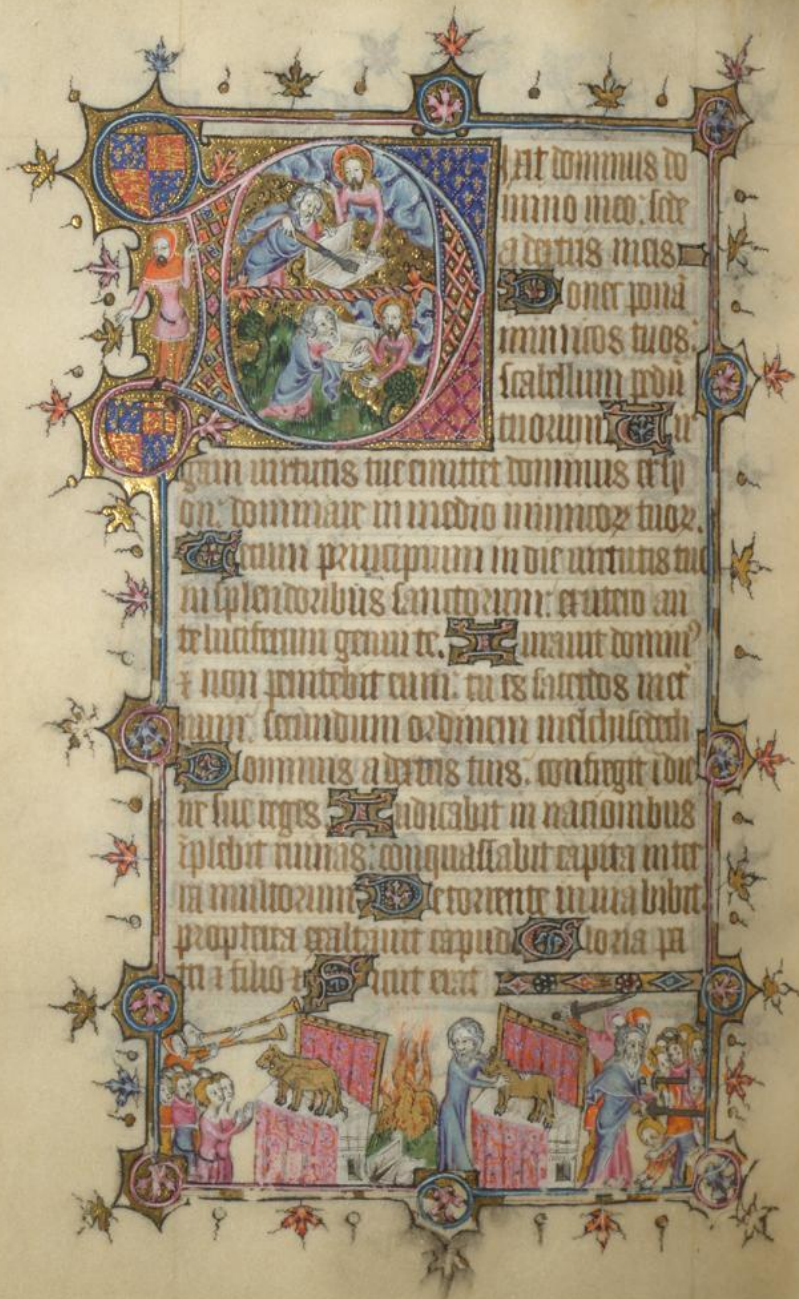 Dixit dominus do
mino meo: sede
a dextris meis
Donec ponā
inimicos tuos:
scabellum pedū
tuorum Uir
gam uirtutis tue emittet dominus ex sy
on: dominare in medio inimicorꝝ tuorꝝ.
Tecum principium in die uirtutis tue
in splendoribus sanctorum: ex utero an
te luciferum genui te. Iurauit dominꝰ
⁊ non penitebit eum: tu es sacerdos in et̄
num: secundum ordinem melchisedech
Dominus a dextris tuis: confregit i die
ire sue reges Iudicabit in nationibus
īplebit ruinas: conquassabit capita in ter
ra multorum De torrente in uia bibet:
propterea exaltauit capud Gloria pa
tri ⁊ filio ⁊ Sicut erat